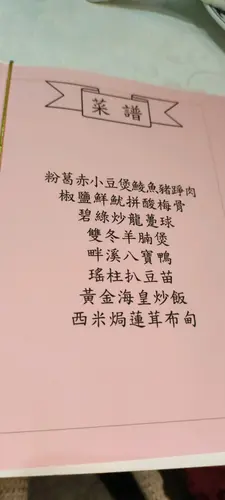 菜譜
粉葛赤小豆煲鯪魚豬踭肉
椒鹽鮮魷拼酸梅骨
碧綠炒龍躉球
雙冬羊腩煲
畔溪八寶鴨
瑤柱扒豆苗
黃金海皇炒飯
西米焗蓮茸布甸